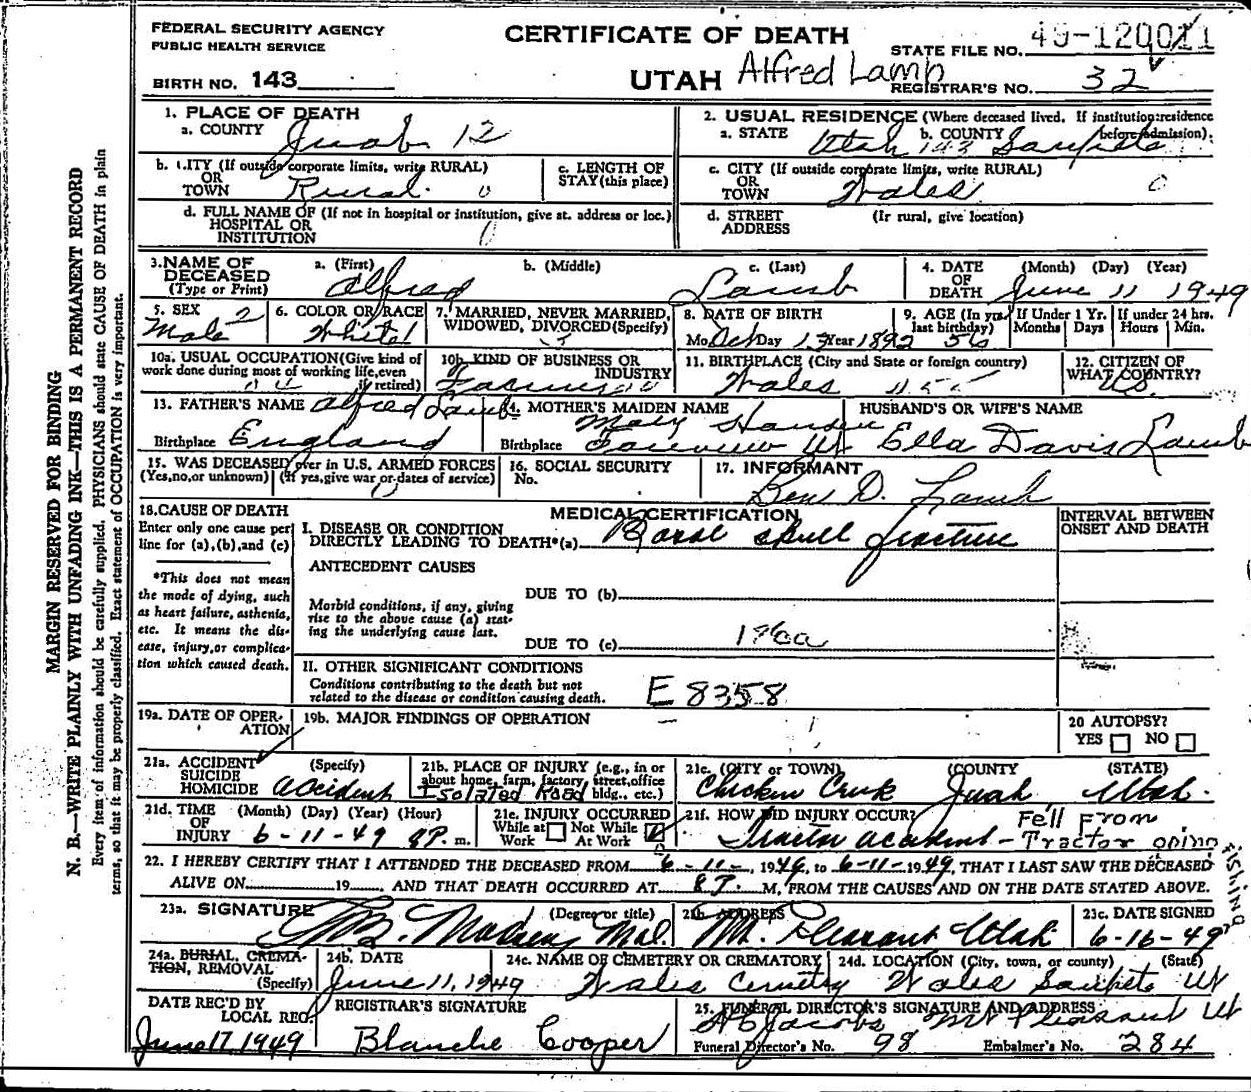 FEDERAL SECURITY AGENCY
PUBLIC HEALTH SERVICE
CERTIFICATE OF DEATH
STATE FILE NO.
BIRTH NO. 143
UTAH Alfred Lamb
REGISTRAR'S NO. 32
1. PLACE OF DEATH
a. COUNTY Juab 12
2. USUAL RESIDENCE (Where deceased lived. If institution: residence before admission).
a. STATE Utah 143 b. COUNTY Sanpete
b. CITY (If outside corporate limits, write RURAL) OR TOWN Rural 0
c. LENGTH OF STAY (this place)
c. CITY (If outside corporate limits, write RURAL) OR TOWN Wales 0
d. FULL NAME OF (If not in hospital or institution, give st. address or loc.) HOSPITAL OR INSTITUTION
d. STREET ADDRESS (If rural, give location)
3. NAME OF DECEASED (Type or Print)
a. (First) Alfred
b. (Middle)
c. (Last) Lamb
4. DATE OF DEATH (Month) (Day) (Year) June 11 1949
5. SEX Male 2
6. COLOR OR RACE White
7. MARRIED, NEVER MARRIED, WIDOWED, DIVORCED (Specify)
8. DATE OF BIRTH Mo. Oct Day 13 Year 1892
9. AGE (In yrs. last birthday) 56
If Under 1 Yr. Months Days
If under 24 hrs. Hours Min.
10a. USUAL OCCUPATION (Give kind of work done during most of working life, even if retired)
10b. KIND OF BUSINESS OR INDUSTRY
11. BIRTHPLACE (City and State or foreign country) Wales
12. CITIZEN OF WHAT COUNTRY? U.S.
13. FATHER'S NAME Alfred Lamb
Birthplace England
14. MOTHER'S MAIDEN NAME Mary Hansen
Birthplace Fairview Ut
HUSBAND'S OR WIFE'S NAME
Ella Davis Lamb
15. WAS DECEASED ever in U.S. ARMED FORCES
(Yes, no, or unknown) (If yes, give war or dates of service)
16. SOCIAL SECURITY No.
17. INFORMANT
Ben D. Lamb
18. CAUSE OF DEATH
Enter only one cause per line for (a), (b), and (c)
*This does not mean the mode of dying, such as heart failure, asthenia, etc. It means the disease, injury, or complication which caused death.
MEDICAL CERTIFICATION
INTERVAL BETWEEN ONSET AND DEATH
I. DISEASE OR CONDITION DIRECTLY LEADING TO DEATH*(a) Basal skull fracture
ANTECEDENT CAUSES
DUE TO (b)
Morbid conditions, if any, giving rise to the above cause (a) stating the underlying cause last.
DUE TO (c)
II. OTHER SIGNIFICANT CONDITIONS
Conditions contributing to the death but not related to the disease or condition causing death. E 8358
19a. DATE OF OPERATION
19b. MAJOR FINDINGS OF OPERATION
20 AUTOPSY?
YES NO
21a. ACCIDENT SUICIDE HOMICIDE (Specify) Accident
21b. PLACE OF INJURY (e.g., in or about home, farm, factory, street, office bldg., etc.) Isolated Road
21c. (CITY or TOWN) (COUNTY (STATE)
Chicken Creek Juab Utah.
21d. TIME OF INJURY (Month) (Day) (Year) (Hour) 6-11-49 8P. m.
21e. INJURY OCCURRED
While at Work Not While At Work
21f. HOW DID INJURY OCCUR? Fell From
Tractor accident - Tractor going fishing
22. I HEREBY CERTIFY THAT I ATTENDED THE DECEASED FROM 6-11-, 1949, to 6-11-1949, THAT I LAST SAW THE DECEASED
ALIVE ON 19 , AND THAT DEATH OCCURRED AT 8P. M, FROM THE CAUSES AND ON THE DATE STATED ABOVE.
23a. SIGNATURE (Degree or title)
Madsen M.d.
23b. ADDRESS
Mt. Pleasant Utah
23c. DATE SIGNED
6-16-49
24a. BURIAL, CREMATION, REMOVAL (Specify)
24b. DATE
June 11, 1949
24c. NAME OF CEMETERY OR CREMATORY
Wales Cemetery
24d. LOCATION (City, town, or county) (State)
Wales Sanpete Ut
DATE REC'D BY LOCAL REG.
June 17, 1949
REGISTRAR'S SIGNATURE
Blanche Cooper
25. FUNERAL DIRECTOR'S SIGNATURE AND ADDRESS
Jacobs Mt Pleasant Ut
Funeral Director's No. 98 Embalmer's No. 284
MARGIN RESERVED FOR BINDING
N. B.—WRITE PLAINLY WITH UNFADING INK—THIS IS A PERMANENT RECORD
Every item of information should be carefully supplied. PHYSICIANS should state CAUSE OF DEATH in plain
terms, so that it may be properly classified. Exact statement of OCCUPATION is very important.